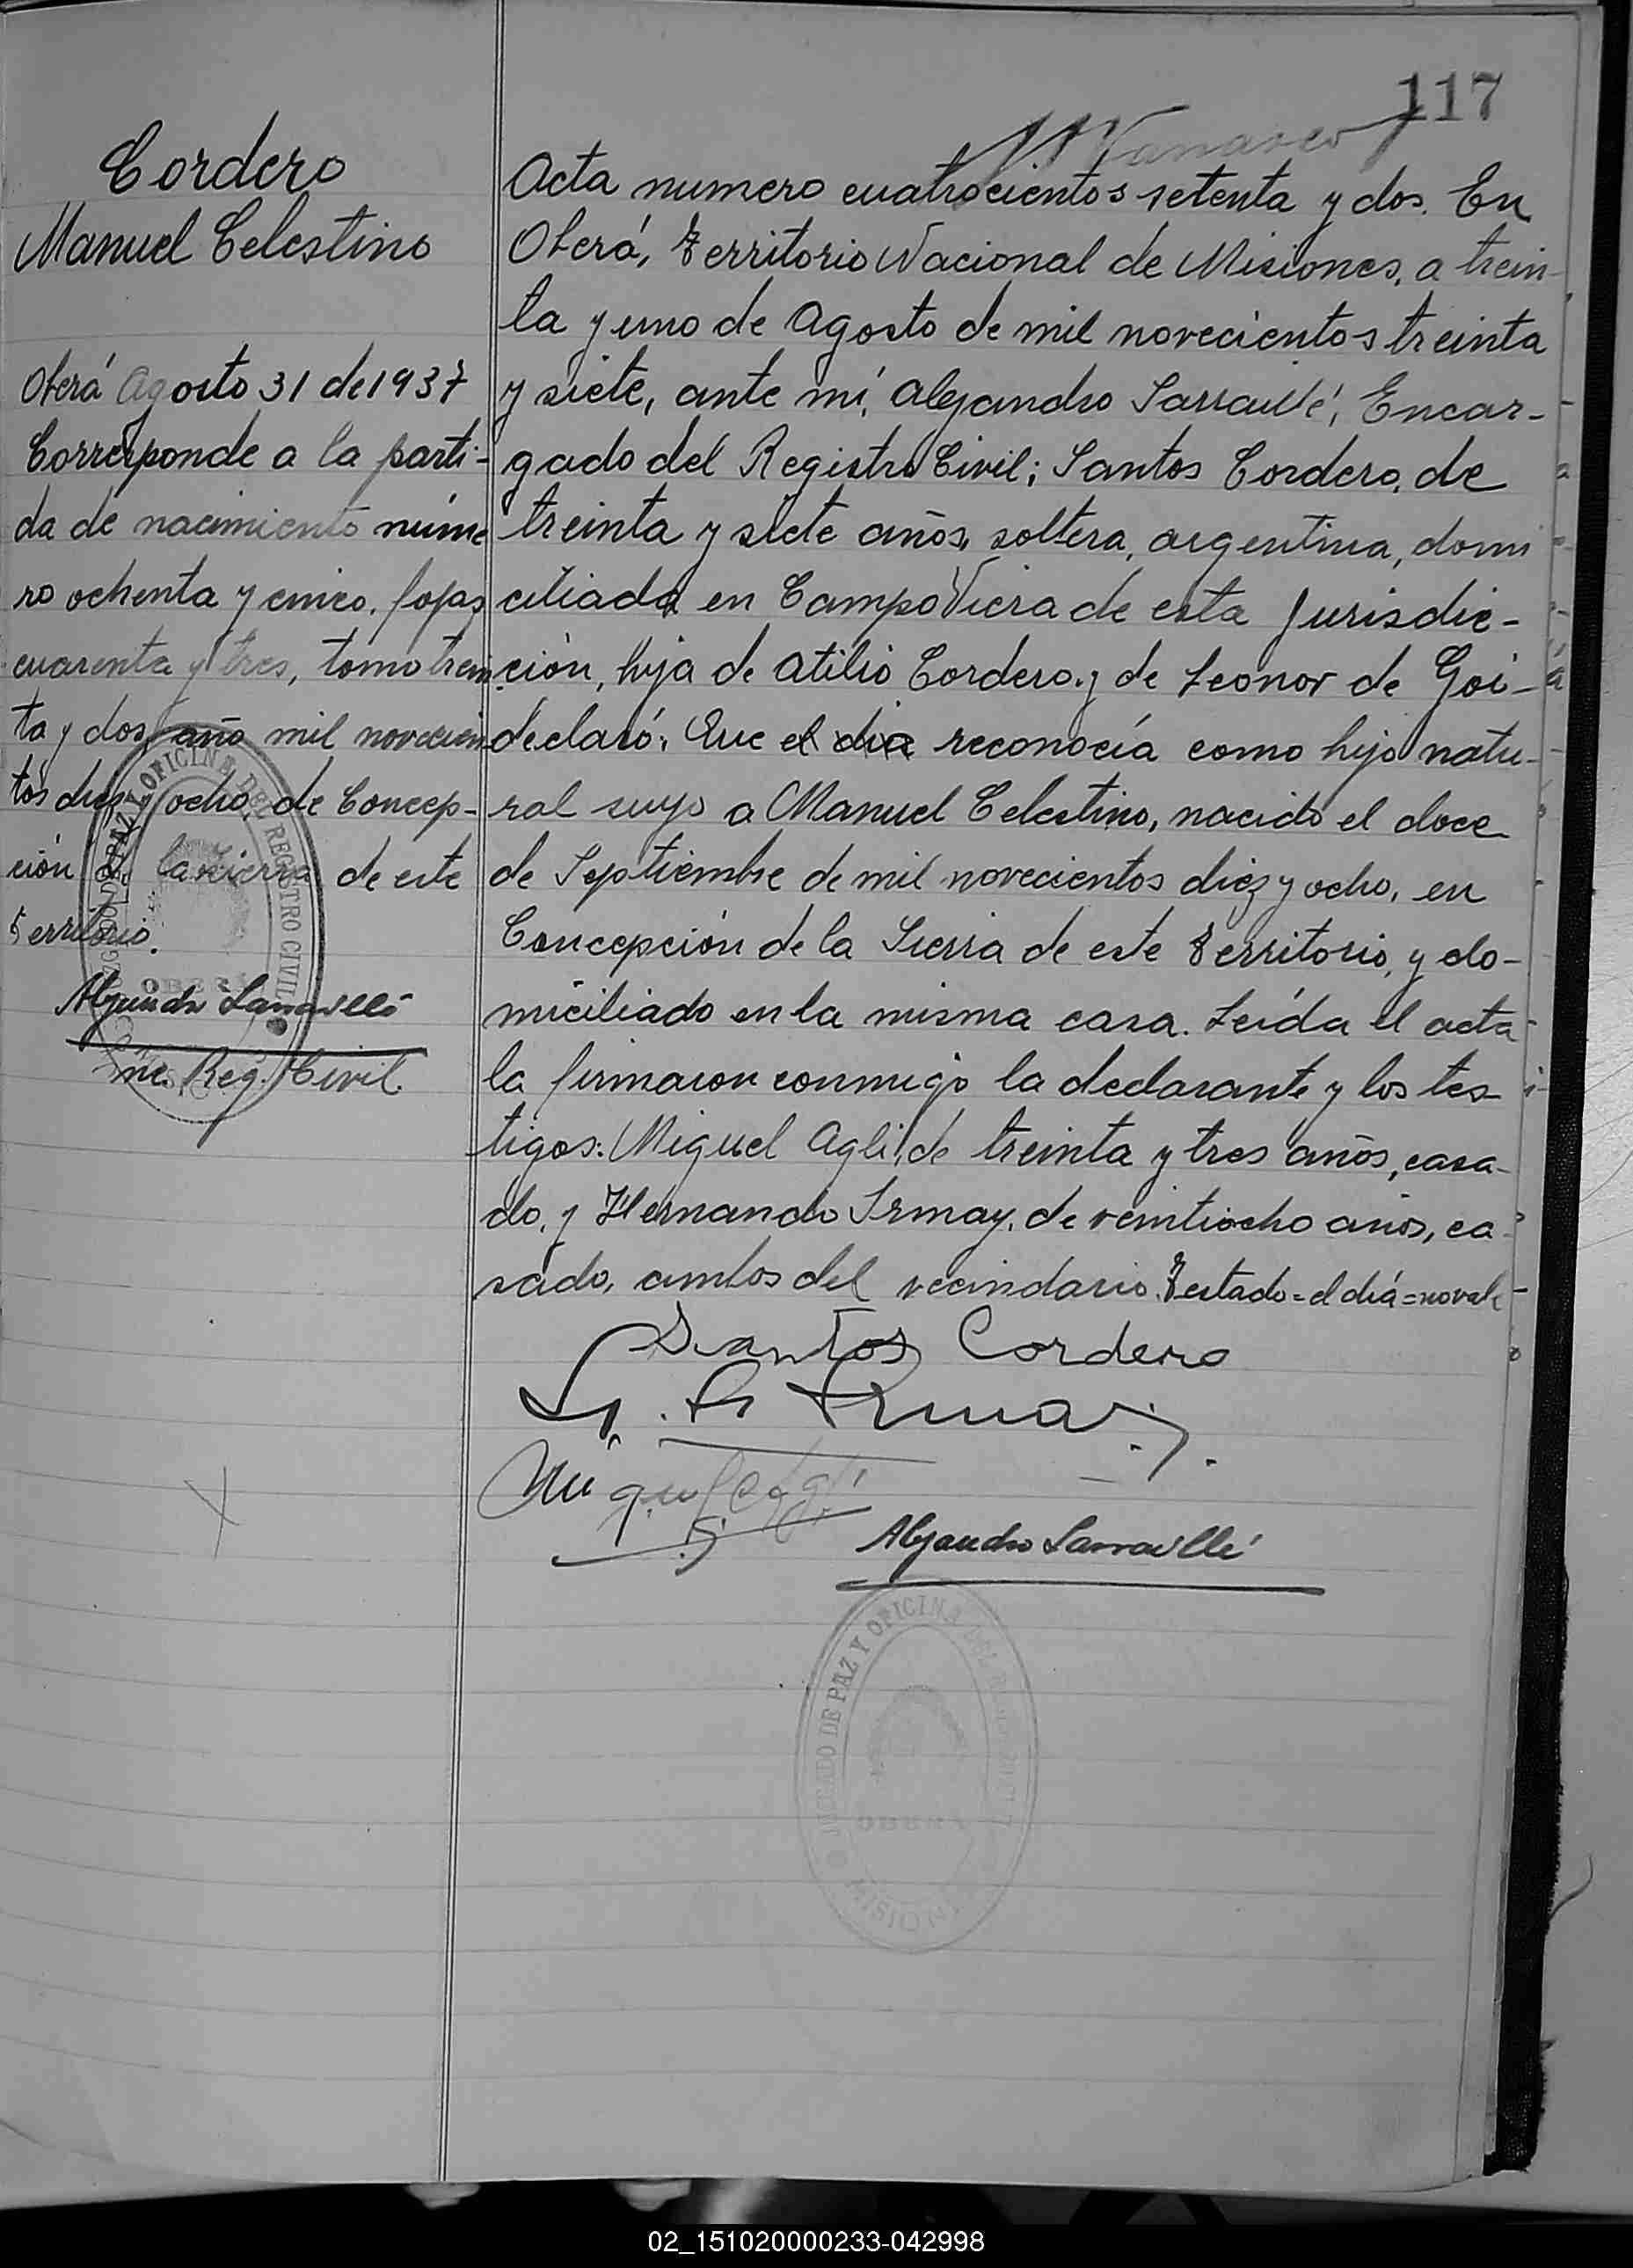 117
Cordero
Manuel Celestino
Oberá Agosto 31 de 1937
Corresponde a la parti-
da de nacimiento núme
ro ochenta y cinco, fojas
cuarenta y tres, tomo trein
ta y dos, año mil novecien
tos diez y ocho, de Concep-
ción de la sierra de este
Territorio.
Alejandro Sarraillé
Enc. Reg. Civil.
Acta numero cuatrocientos setenta y dos. En
Oberá, Territorio Nacional de Misiones, a trein-
ta y uno de Agosto de mil novecientos treinta
y siete, ante mí, Alejandro Sarraillé, Encar-
gado del Registro Civil; Santos Cordero, de
treinta y siete años, soltera, argentina, domi
ciliada en Campo Viera de esta Jurisdic-
ción, hija de Atilio Cordero y de Leonor de Goi-
declaró: Que el dia reconocía como hijo natu-
ral suyo a Manuel Celestino, nacido el doce
de Septiembre de mil novecientos diez y ocho, en
Concepción de la Sierra de este Territorio, y do-
miciliado en la misma casa. Leída el acta
la firmaron conmigo la declarante y los tes-
tigos: Miguel Agli, de treinta y tres años, casa-
do, y Hernando Irmay, de veintiocho años, ca-
sado, ambos del vecindario. Testado=el día=no vale
Santos Cordero
Miguel Agli
Alejandro Sarraillé
JUZGADO DE PAZ Y OFICINA DEL REGISTRO CIVIL
OBERA
MISIONES
02_151020000233-042998